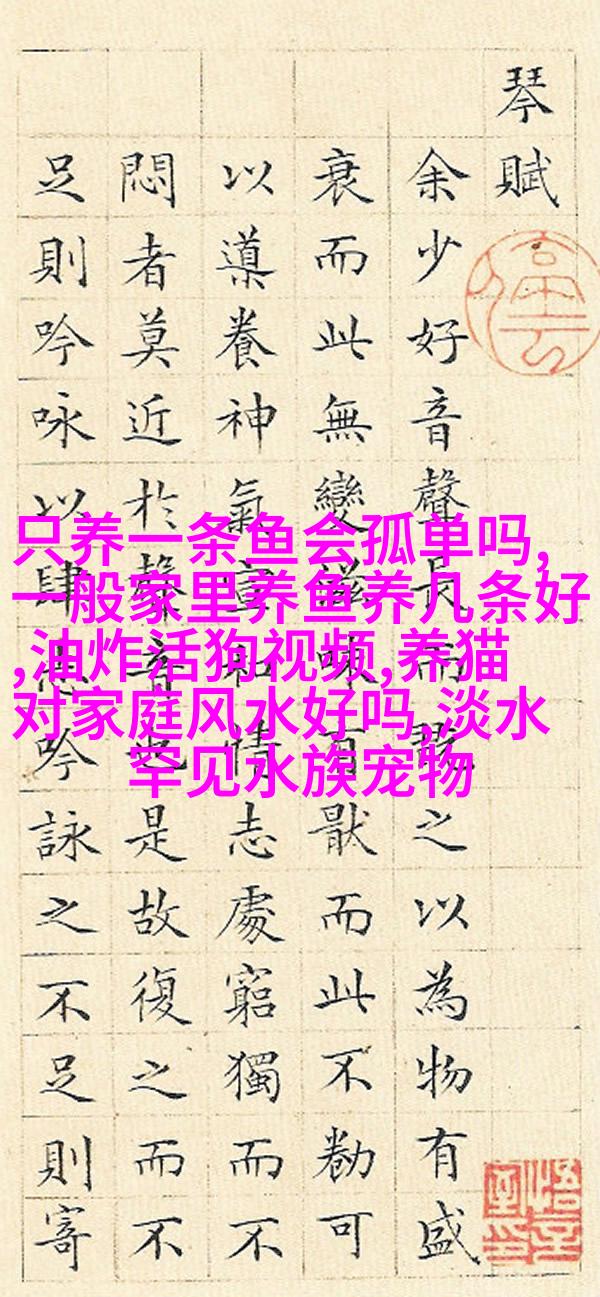 琴賦
余少好音聲長而翫之以為物有盛
衰而此無變滋味有猒而此不勌可
以導養神氣宣和情志處窮獨而不
悶者莫近於聲音也是故復之而不
足則吟咏以肆志吟詠之不足則寄
只养一条鱼会孤单吗,
一般家里养鱼养几条好
,油炸活狗视频,养猫
对家庭风水好吗,淡水
罕见水族宠物